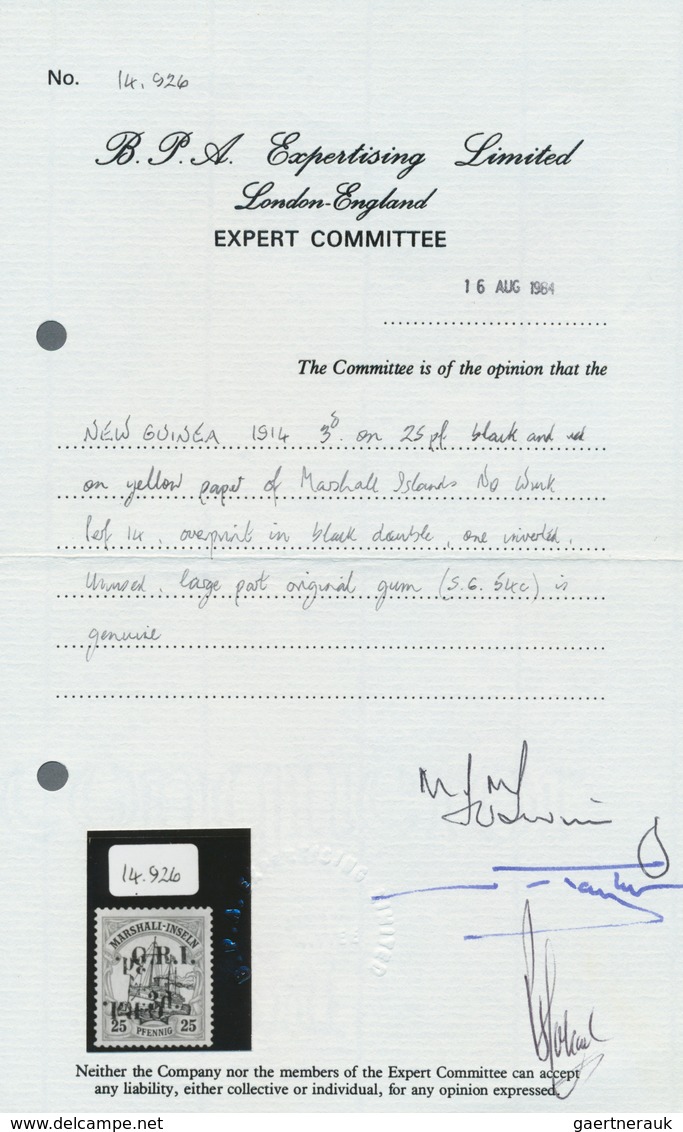 No. 14.926
B. P. A. Expertising Limited
London-England
EXPERT COMMITTEE
16 AUG 1984
The Committee is of the opinion that the
NEW GUINEA 1914 3d. on 25 pf black and red
on yellow paper of Marshall Islands No Wmk
Perf 14, overprint in black double, one inverted,
unused, large part original gum (S.G. 54c) is
genuine
14.926
MARSHALL-INSELN
G.R.I.
3d.
25 PFENNIG 25
Neither the Company nor the members of the Expert Committee can accept
any liability, either collective or individual, for any opinion expressed.
www.delcampe.net
gaertnerauk